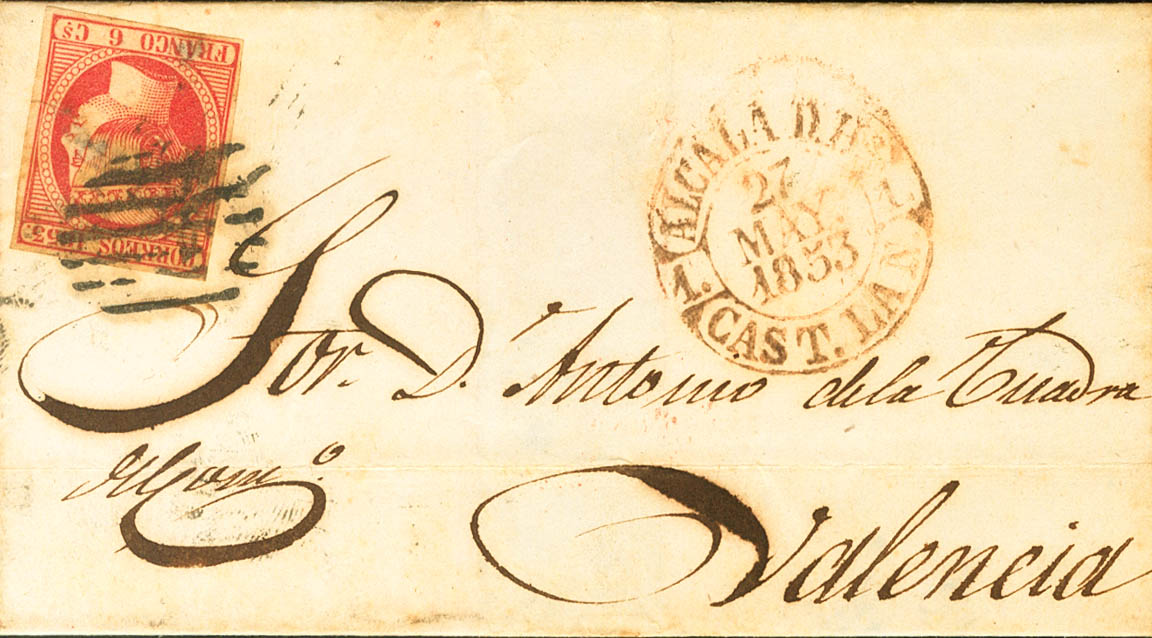 FRANCO 6 Cs
CORREOS 1853
ALCALA D. H.
27
MAY.
1853
1. 1.
CAST. LA N.
Sor. D. Antonio de la Cuadra
Valencia